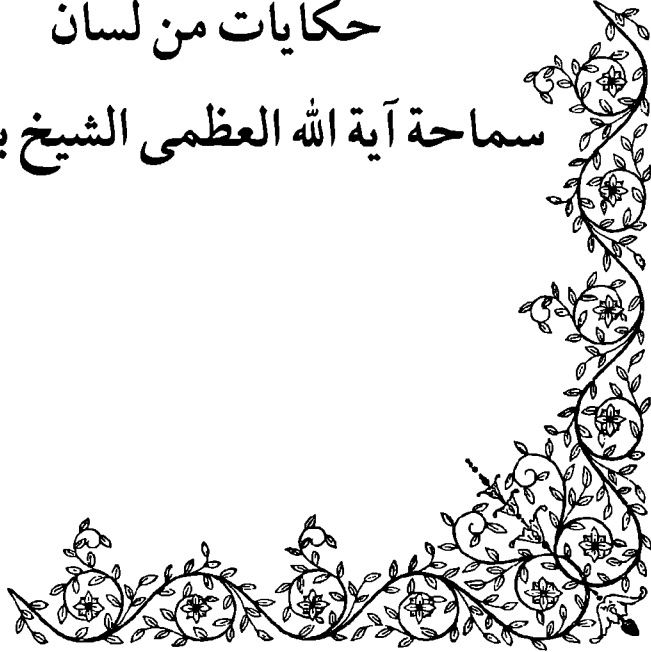 حكايات من لسان
سماحة آية الله العظمى الشيخ